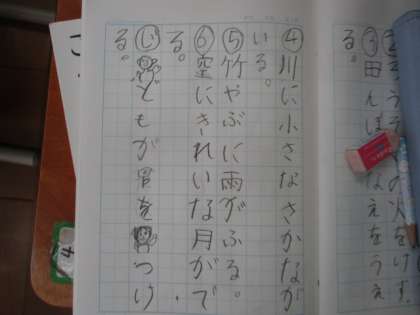 の火をけす
③田んぼ なえをうえ
る。
④川に小さなさかなが
いる。
⑤竹やぶに雨がふる。
⑥空にきれいな月がで
る。
どもが貝を つけ
る。